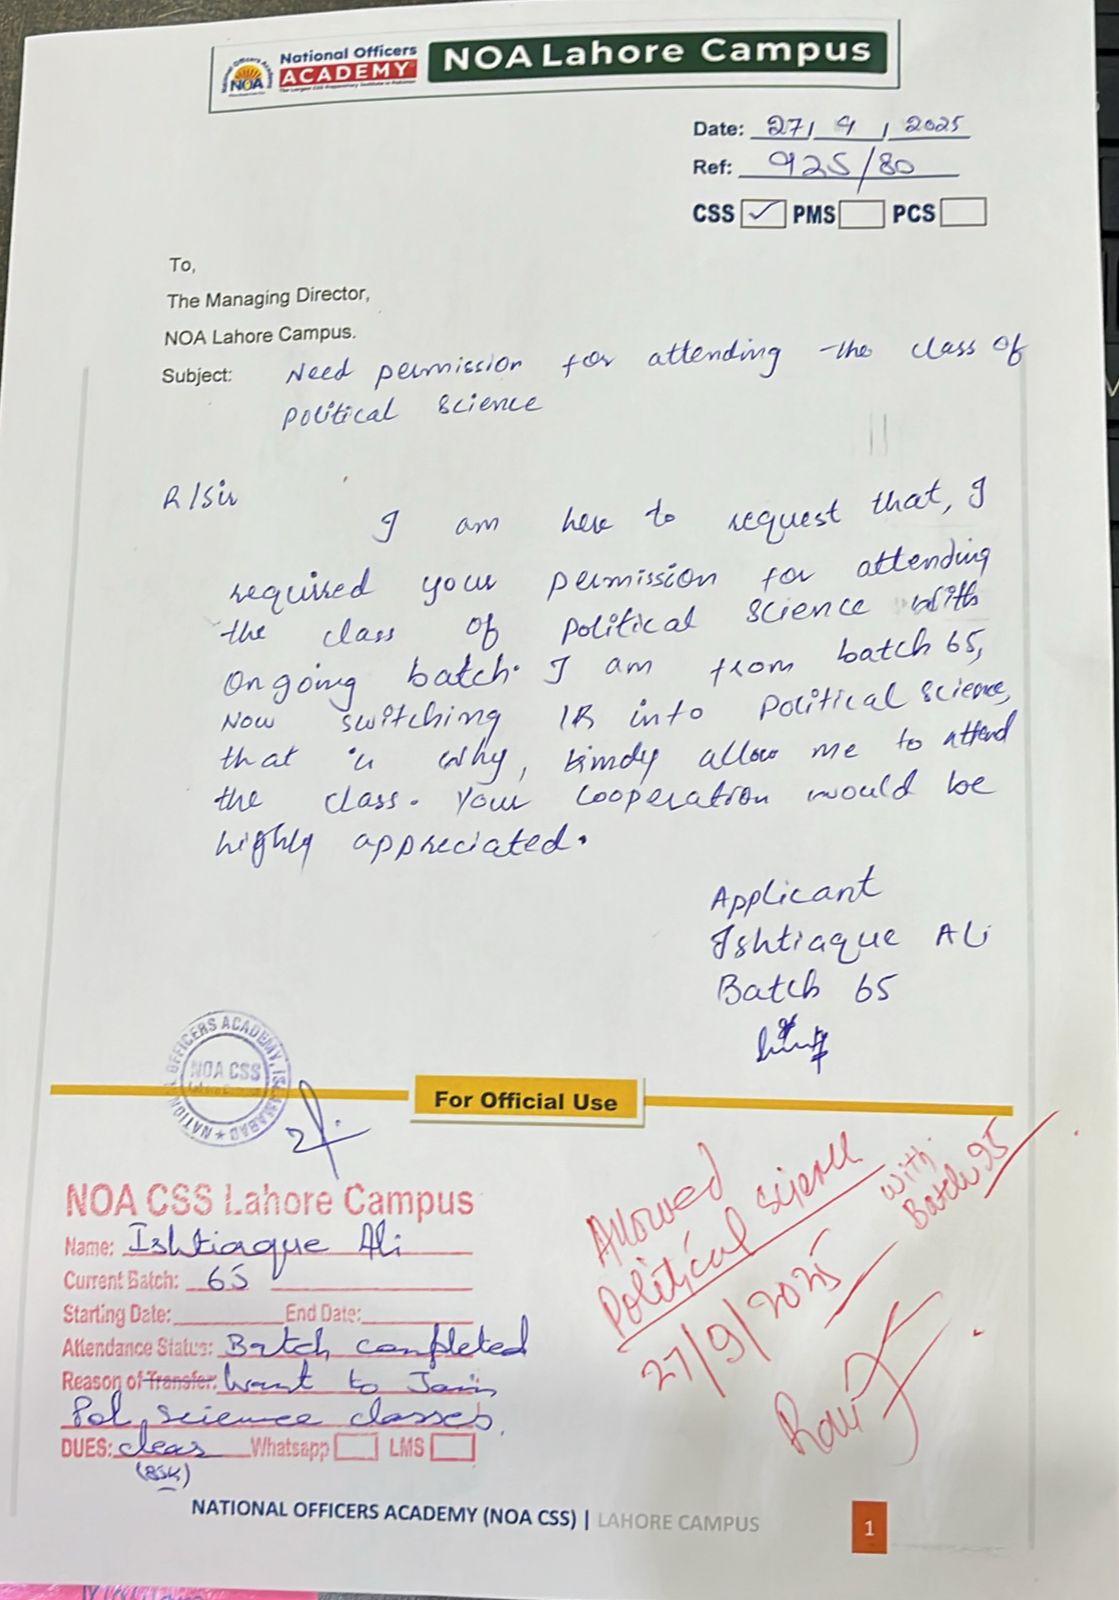 National Officers
ACADEMY
NOA
NOA Lahore Campus
Date: 27/ 9 / 2025
Ref: 925/80
CSS ✓ PMS PCS
To,
The Managing Director,
NOA Lahore Campus.
Subject: Need permission for attending the class of
political science
R/Sir
I am here to request that, I
required your permission for attending
the class of political science with
ongoing batch. I am from batch 65,
Now switching IR into political science,
that is why, kindly allow me to attend
the class. Your cooperation would be
highly appreciated.
Applicant
Ishtiaque Ali
Batch 65
NATIONAL OFFICERS ACADEMY, ISLAMABAD
NOA CSS
For Official Use
NOA CSS Lahore Campus
Name: Ishtiaque Ali
Current Batch: 65
Starting Date: End Date:
Attendance Status: Batch completed
Reason of Transfer: Want to Join
Pol, science classes.
DUES: clear Whatsapp LMS
(85K)
Allowed
Political science
with
Batch 95
27/9/2025
NATIONAL OFFICERS ACADEMY (NOA CSS) | LAHORE CAMPUS
1